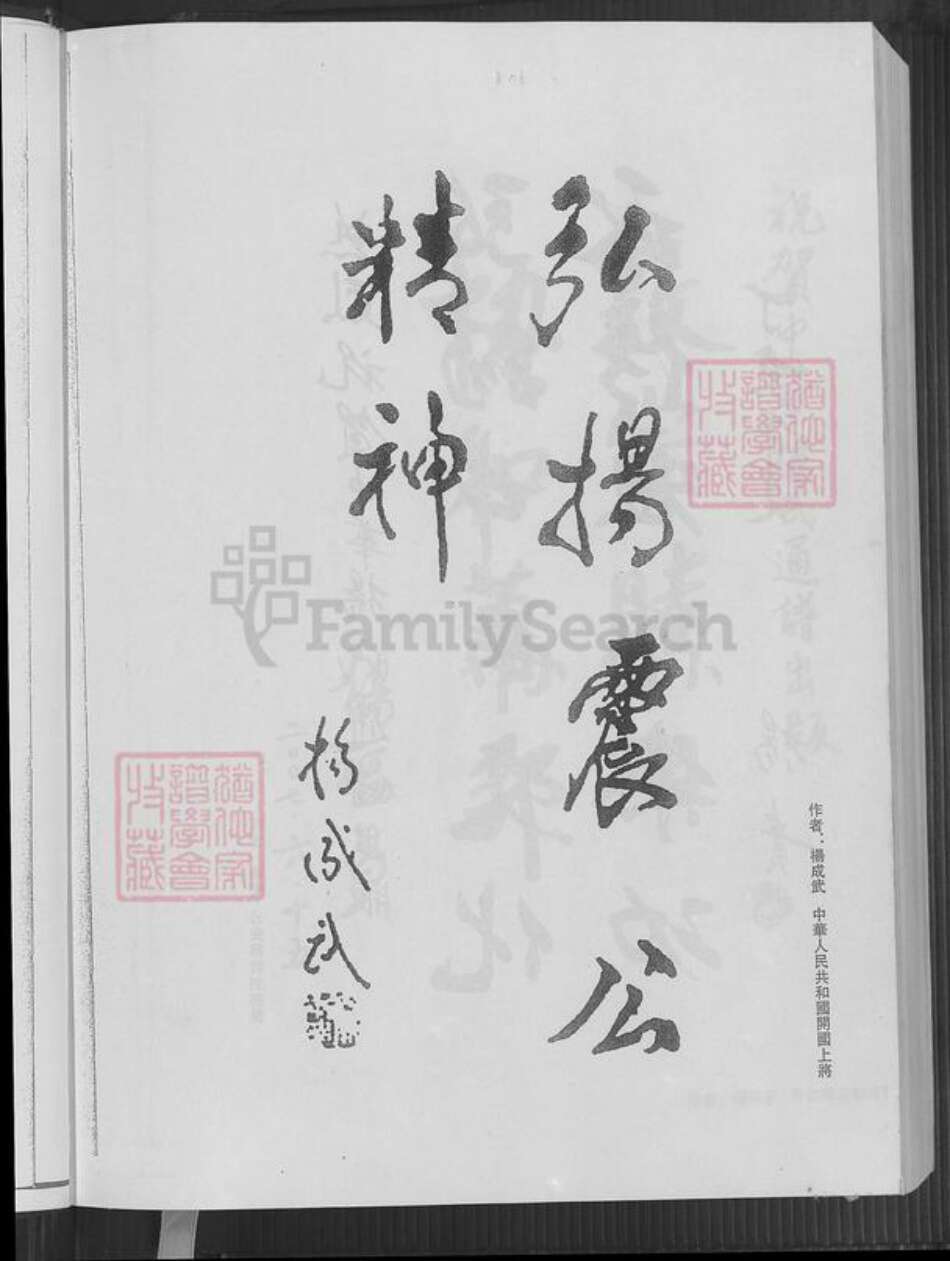 弘揚震公
精神
楊成武
作者：楊成武 中華人民共和國開國上將
猶他家譜學會特藏
猶他家譜學會特藏
FamilySearch